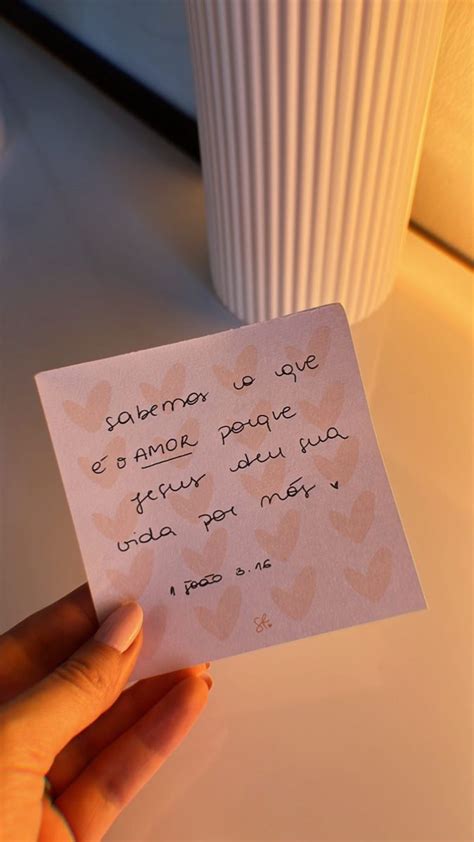 sabemos o que
é o AMOR porque
Jesus deu sua
vida por nós
1 João 3.16